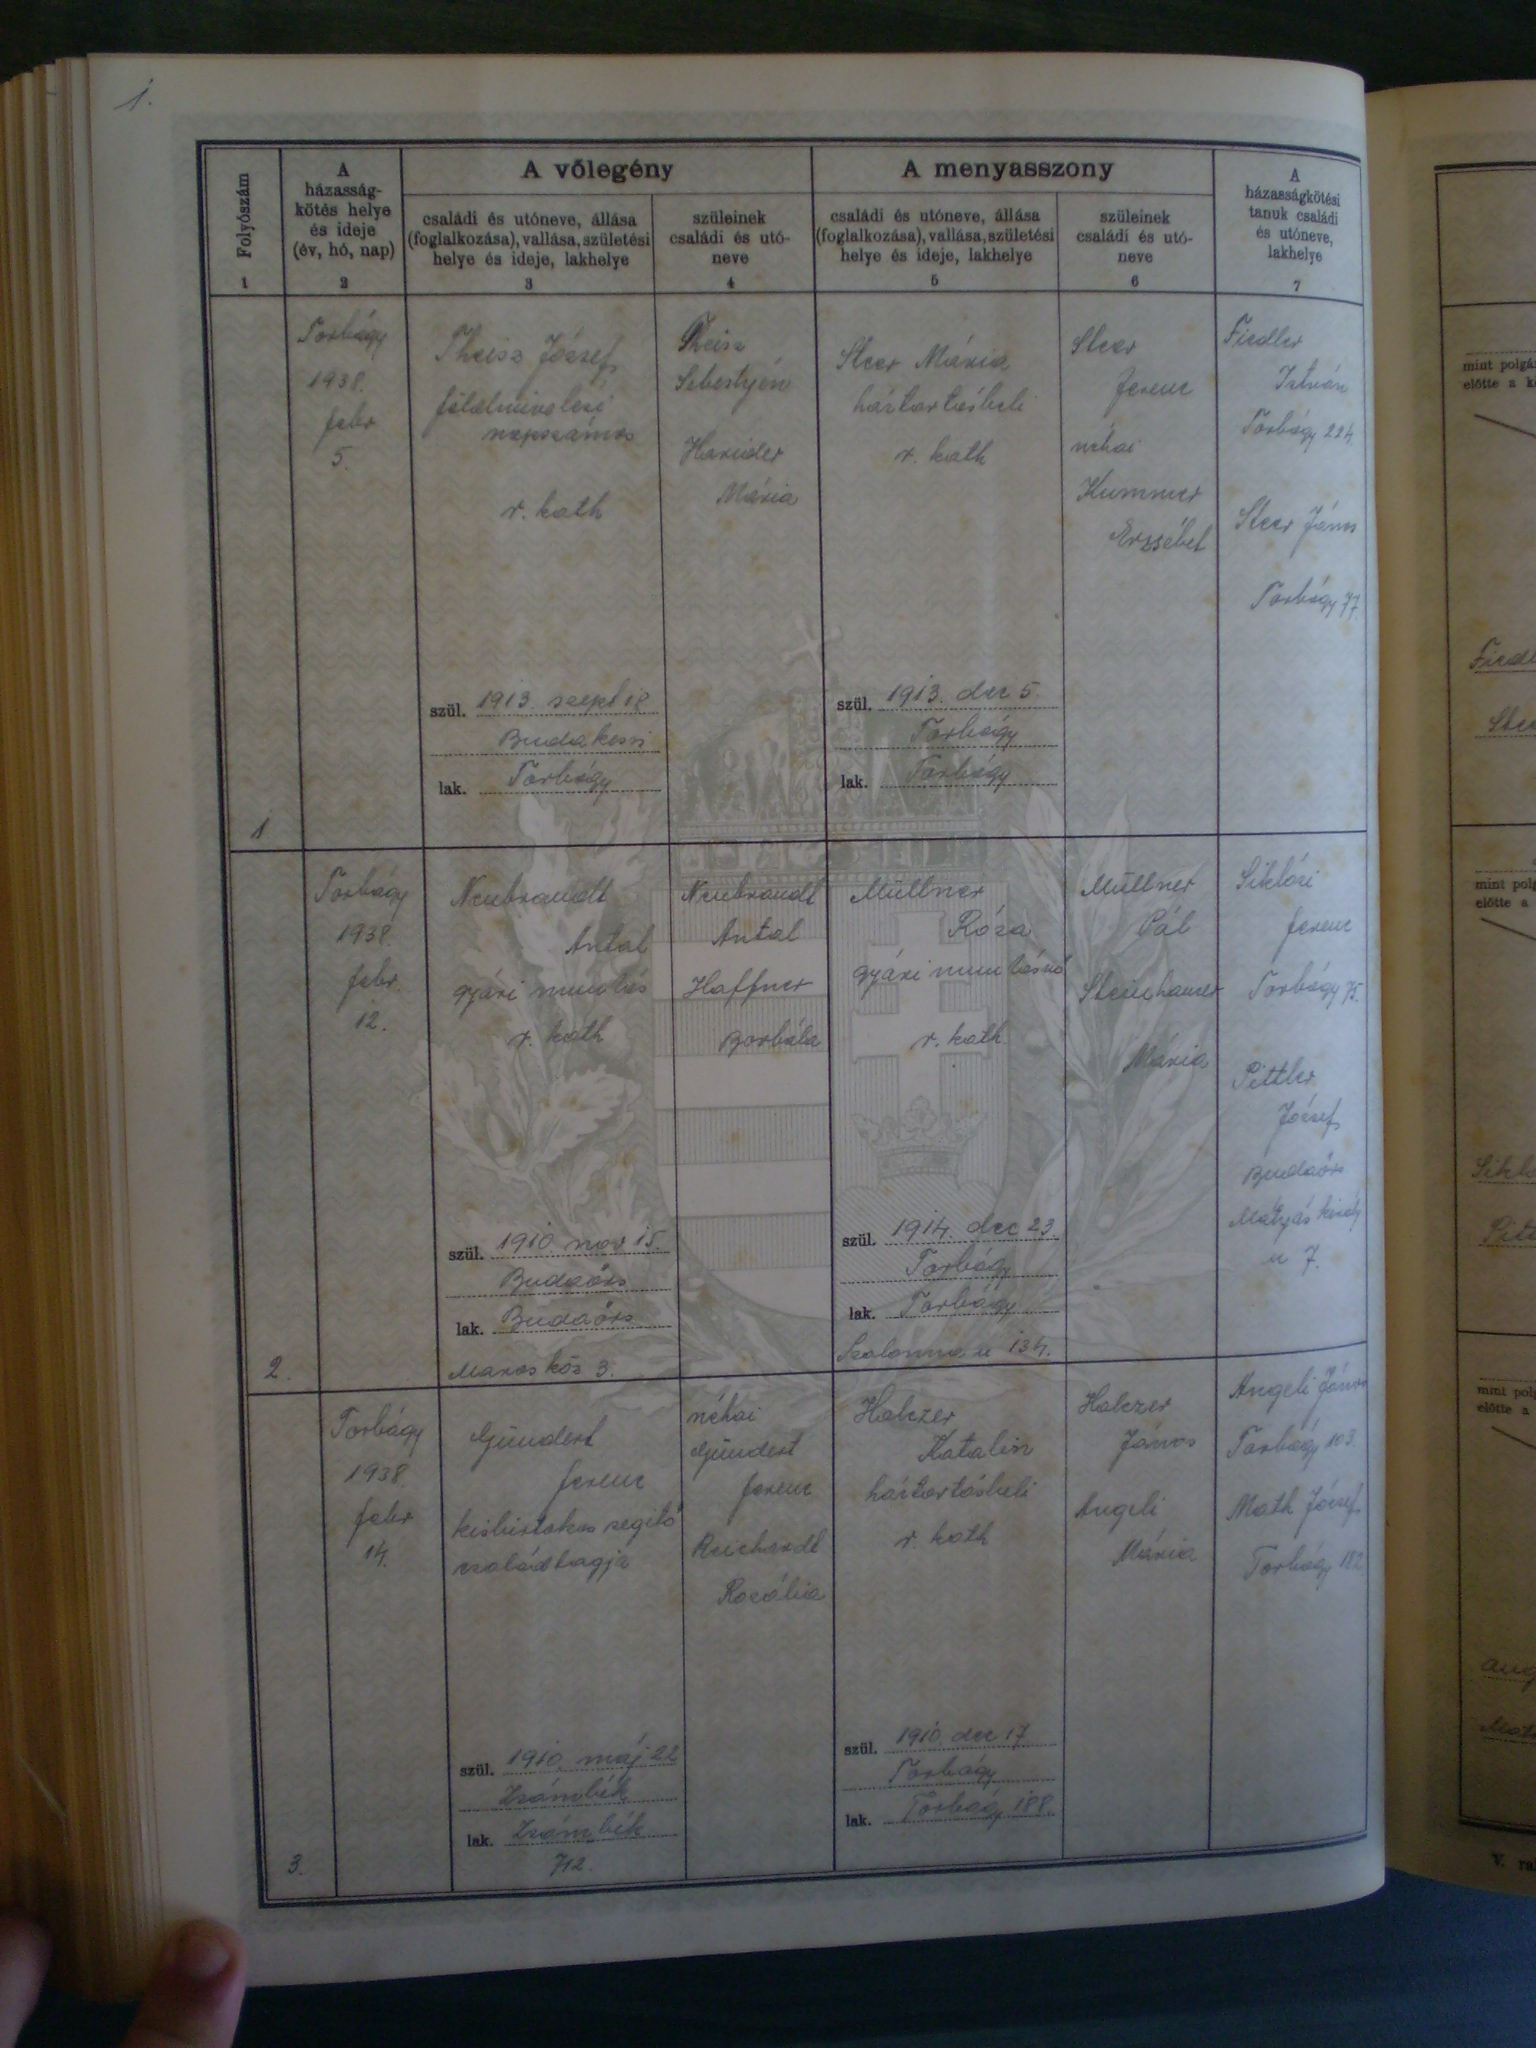 1.
Folyószám
1
A
házasság-
kötés helye
és ideje
(év, hó, nap)
2
A vőlegény
családi és utóneve, állása
(foglalkozása), vallása, születési
helye és ideje, lakhelye
3
szüleinek
családi és utó-
neve
4
A menyasszony
családi és utóneve, állása
(foglalkozása), vallása, születési
helye és ideje, lakhelye
5
szüleinek
családi és utó-
neve
6
A
házasságkötési
tanuk családi
és utóneve,
lakhelye
7
1
Torbágy
1938.
febr
5.
Theisz József
földmivelési
napszámos
r. kath
szül. 1913. szept 18
Budakeszi
lak. Torbágy
Theisz
Sebestyén
Mária
Steer Mária
háztartásbeli
r. kath
szül. 1913. dec 5.
Torbágy
lak. Torbágy
Steer
Ferenc
néhai
Kummer
Erzsébet
Fiedler
István
Torbágy 224.
Steer János
Torbágy 77.
2.
Torbágy
1938.
febr.
12.
Neubrandt
Antal
gyári munkás
r. kath
szül. 1910. nov 15.
Budaörs
lak. Budaörs
Maros köz 3.
Neubrandt
Antal
Haffner
Borbála
Müllner
Róza
gyári munkásnő
r. kath.
szül. 1914. dec 23.
Torbágy
lak. Torbágy
u 134.
Müllner
Pál
Steinhauser
Mária
Siklósi
Ferenc
Torbágy 75.
Pittler
József
Budaörs
Mátyás király
u 7.
3.
Torbágy
1938.
febr
14.
Gündert
Ferenc
kisbirtokos segitő
családtagja
szül. 1910. máj 22
Zsámbék
lak. Zsámbék
712.
néhai
Gündert
Ferenc
Reichardt
Rozália
Halczer
Katalin
háztartásbeli
r. kath
szül. 1910. dec 17
Torbágy
lak. Torbágy 188.
Halczer
János
Angeli
Mária
Angeli János
Torbágy 103.
Math József
Torbágy 182
mint polgá
előtte a k
Fiedl
mint polg
előtte a
Siklo
mint pol
előtte a
V. ra